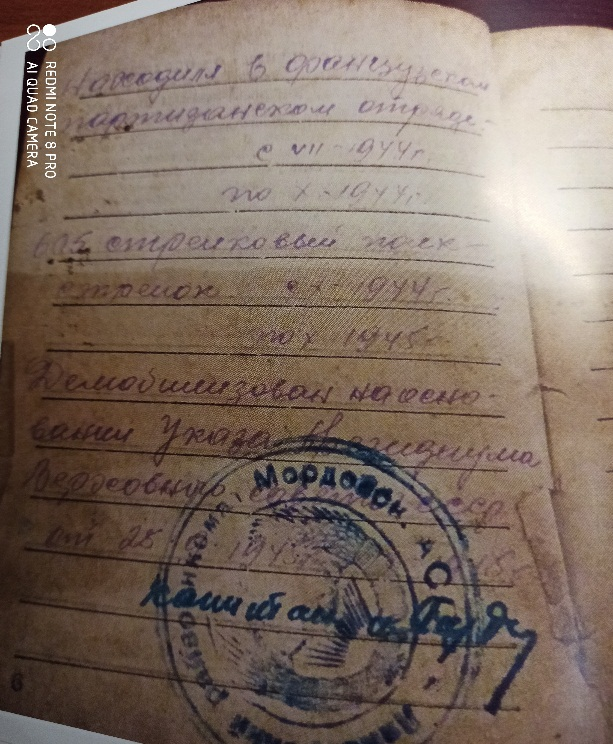 REDMI NOTE 8 PRO
AI QUAD CAMERA
Находился в французском
партизанском отряде
с VII-1944г.
по X-1944г.
стрелковый полк
стрелок с X-1944г.
по X 1945г.
Демобилизован на осно-
вании Указа Президиума
Верховного Совета СССР
от 25 1945г.
Мордовск. АС
капитан
6